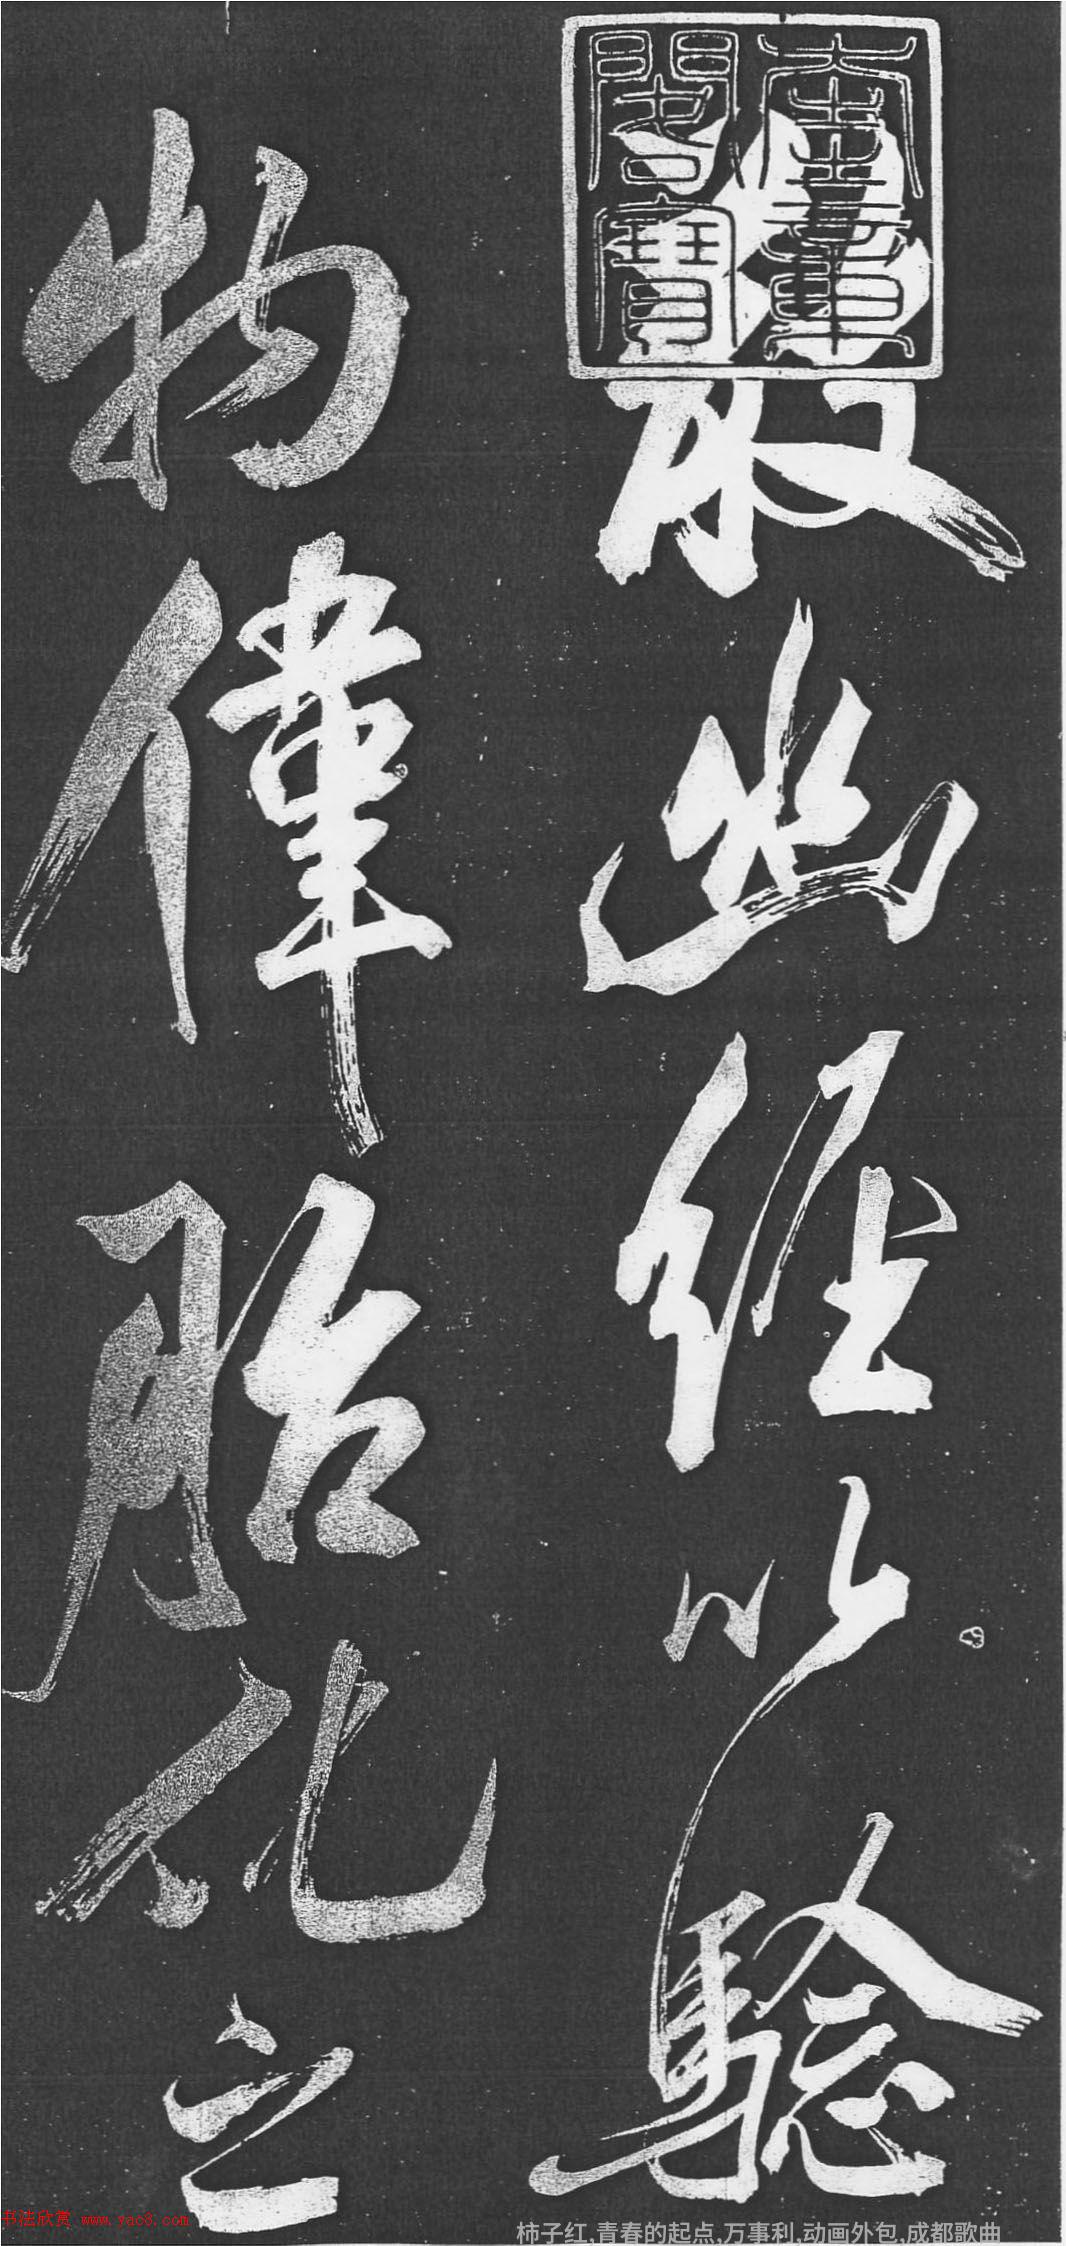 奎章
閣寶
散幽經以驗
物偉胎化之
书法欣赏 www.yac8.com
柿子红,青春的起点,万事利,动画外包,成都歌曲